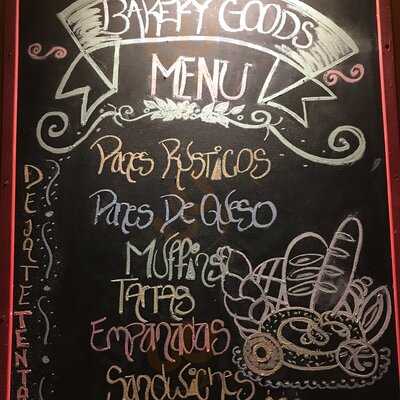 BAKERY GOODS
MENU
PANES RÚSTICOS
PANES DE QUESO
MUFFINS
TARTAS
EMPANADAS
SANDWICHES
DEJATE TENTA